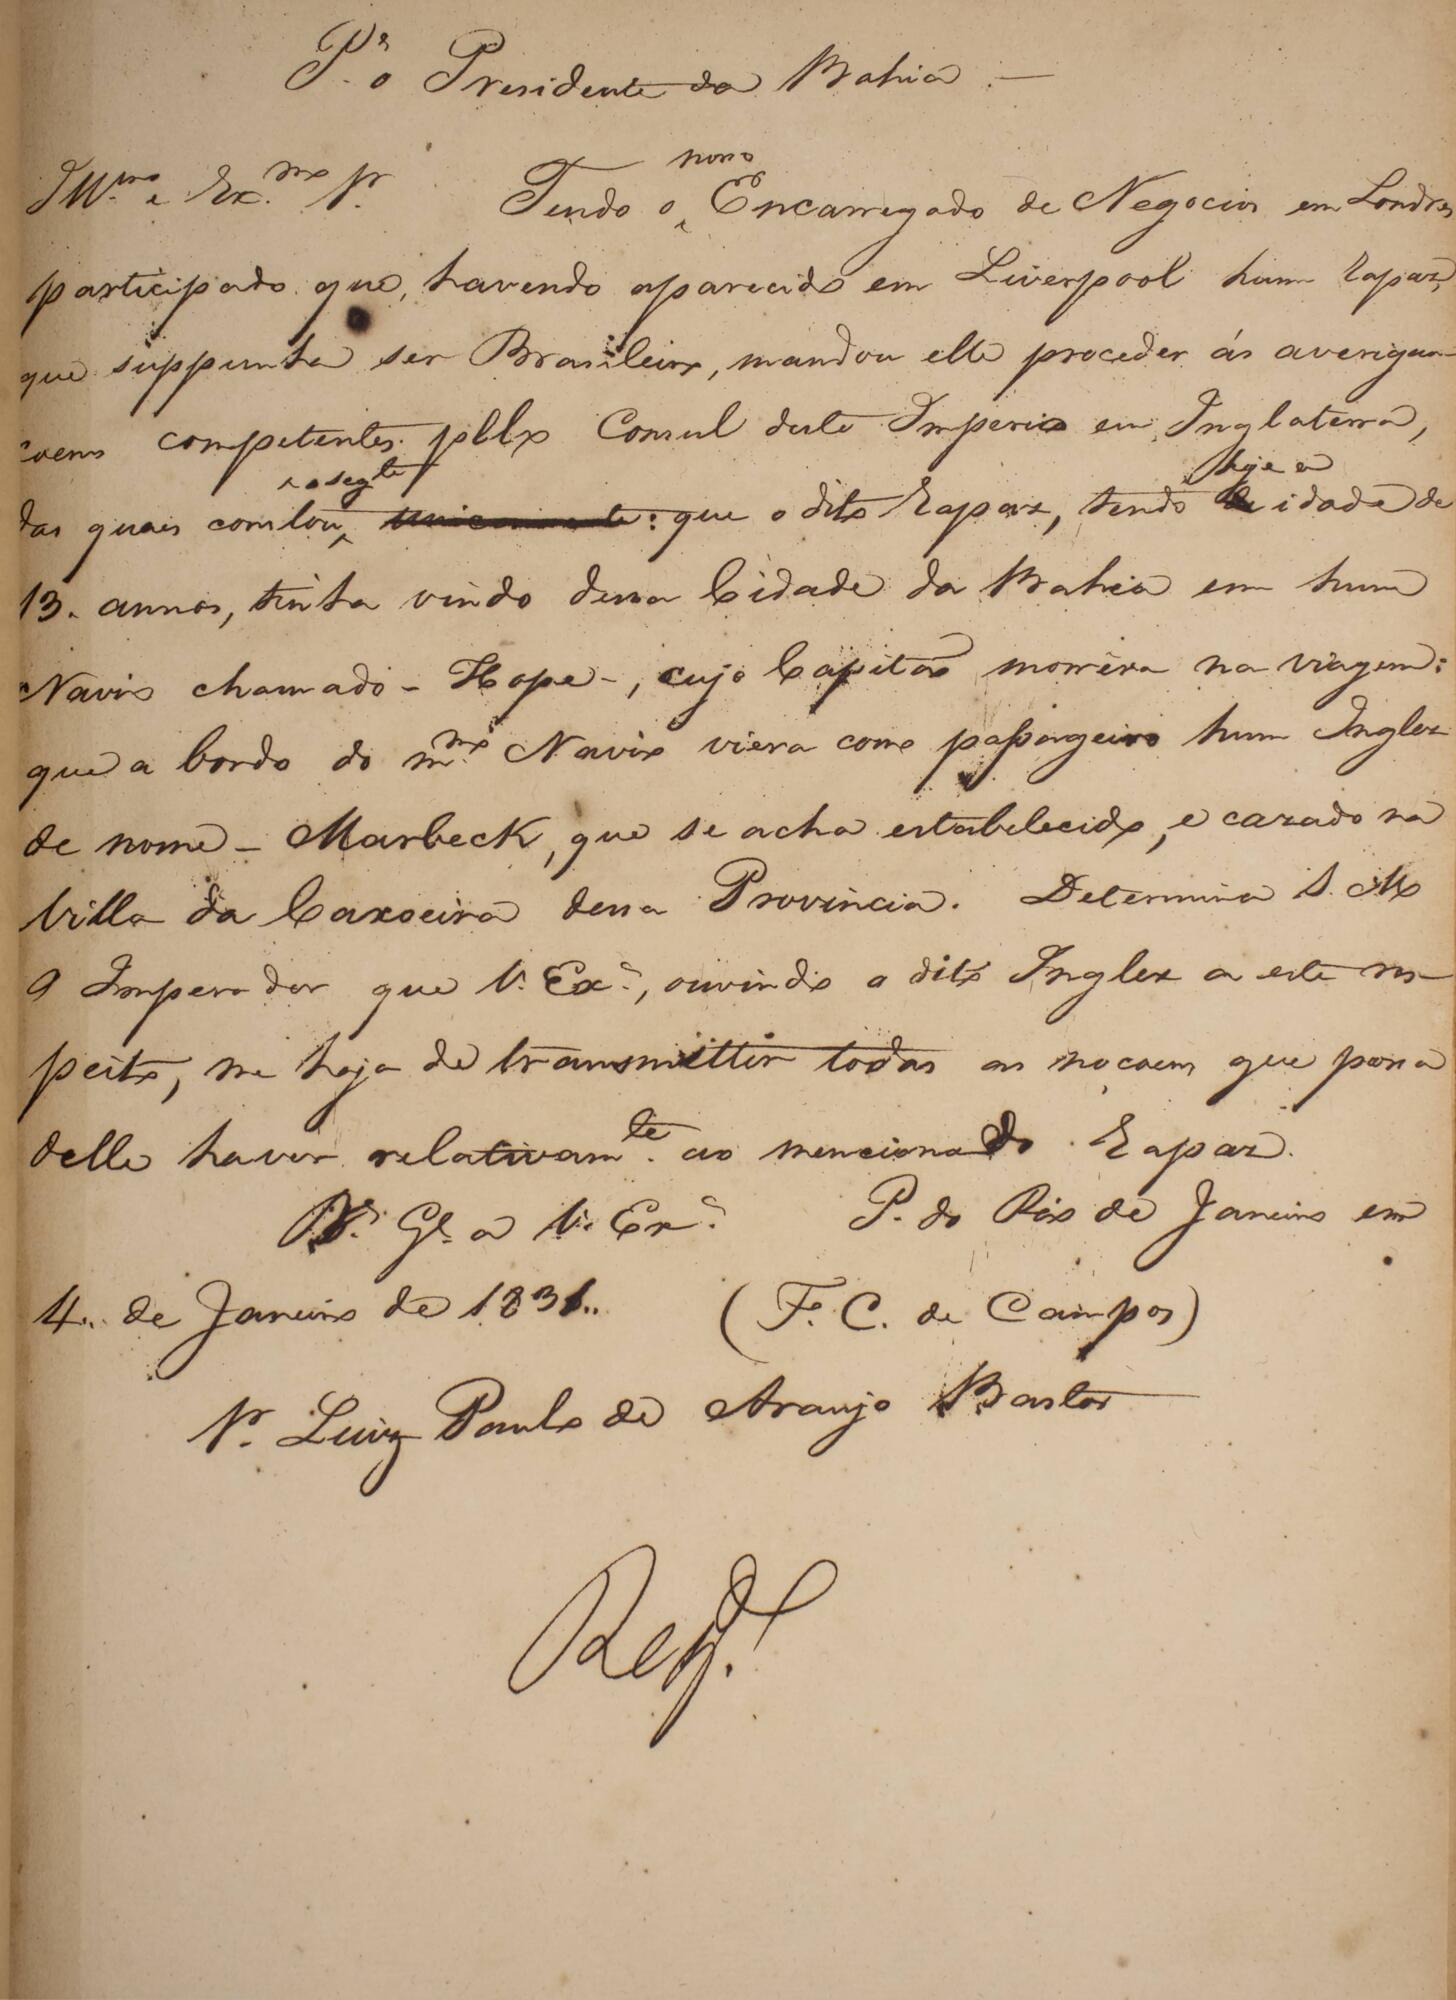 Pª o Presidente da Bahia —
Illmo e Exmo Sr. Tendo o novo Encarregado de Negocios em Londres
participado que, havendo aparecido em Liverpool hum Rapaz,
que suppunha ser Brasileiro, mandou elle proceder ás averigua-
çoens competentes pello Consul deste Imperio em Inglaterra,
das quaes constou o segte unicamente: que o dito Rapaz, tendo hoje a idade de
13. annos, tinha vindo dessa Cidade da Bahia em hum
Navio chamado - Hope -, cujo Capitão morrêra na viagem:
que a bordo do mmo Navio viera como passageiro hum Inglez
de nome - Marbeck, que se acha estabelecido, e cazado na
Villa da Caxoeira dessa Provincia. Determina S. M.
O Imperador que V. Exª, ouvindo o dito Inglez a este res-
peito, me haja de transmittir todas as noçoens que possa
delle haver relativamte ao mencionado Rapaz.
Ds Ge a V. Exª. P. do Rio de Janeiro em
4.. de Janeiro de 1831.. (F. C. de Campos)
Sr. Luiz Paulo de Araujo Bastos
Regda